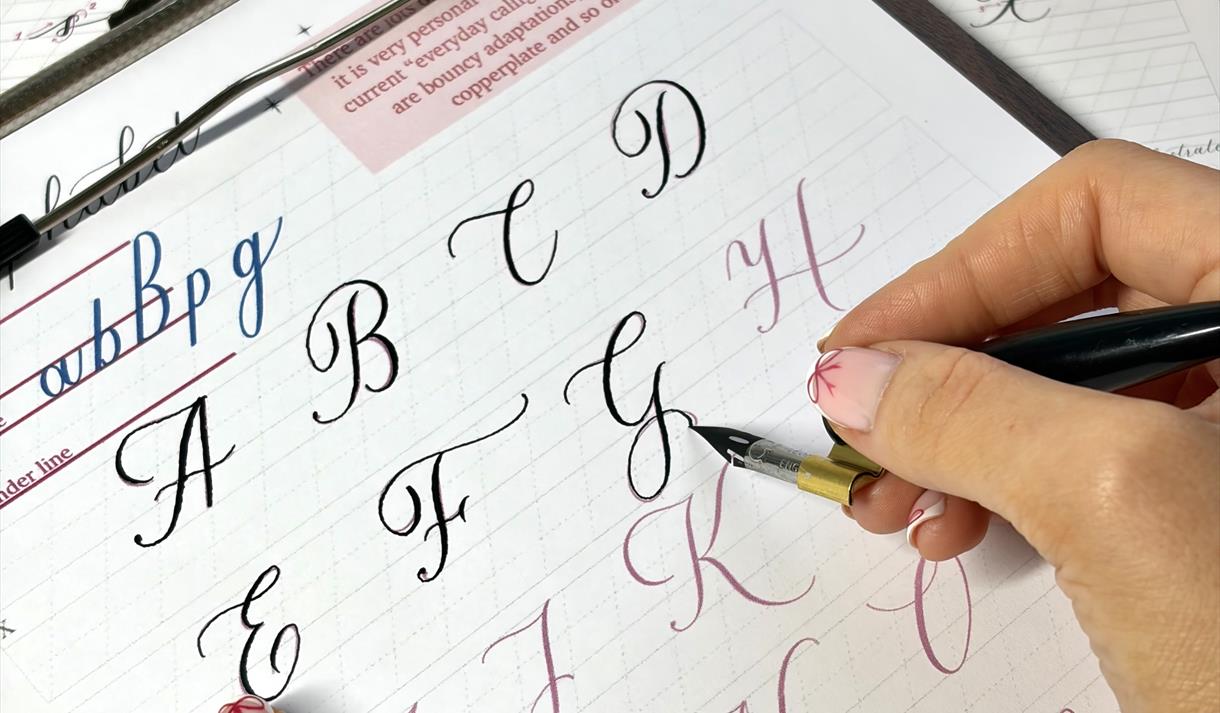 There are lots o
it is very personal
current "everyday callig
are bouncy adaptations
copperplate and so o
habet
a b B p g
nder line
A B C D
E F G H
J K
O